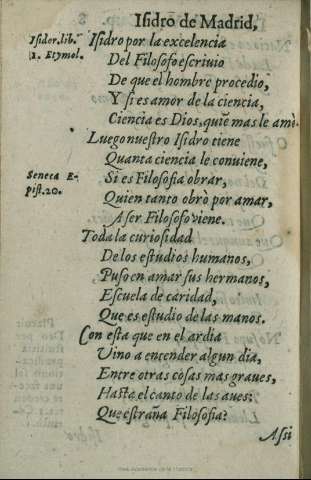 Isidro de Madrid,
Isider. lib.
1. Etymol.
Isidro por la excelencia
Del Filosofo escriuio
De que el hombre procedio,
Y si es amor de la ciencia,
Ciencia es Dios, quiē mas le amò
Luego nuestro Isidro tiene
Quanta ciencia le conuiene,
Seneca E-
pist. 20.
Si es Filosofia obrar,
Quien tanto obrò por amar,
A ser Filosofo viene.
Toda la curiosidad
De los estudios humanos,
Puso en amar sus hermanos,
Escuela de caridad,
Que es estudio de las manos.
Con esta que en el ardia
Vino a entender algun dia,
Entre otras cosas mas graues,
Hasta el canto de las aues:
Que estraña Filosofia?
Assi